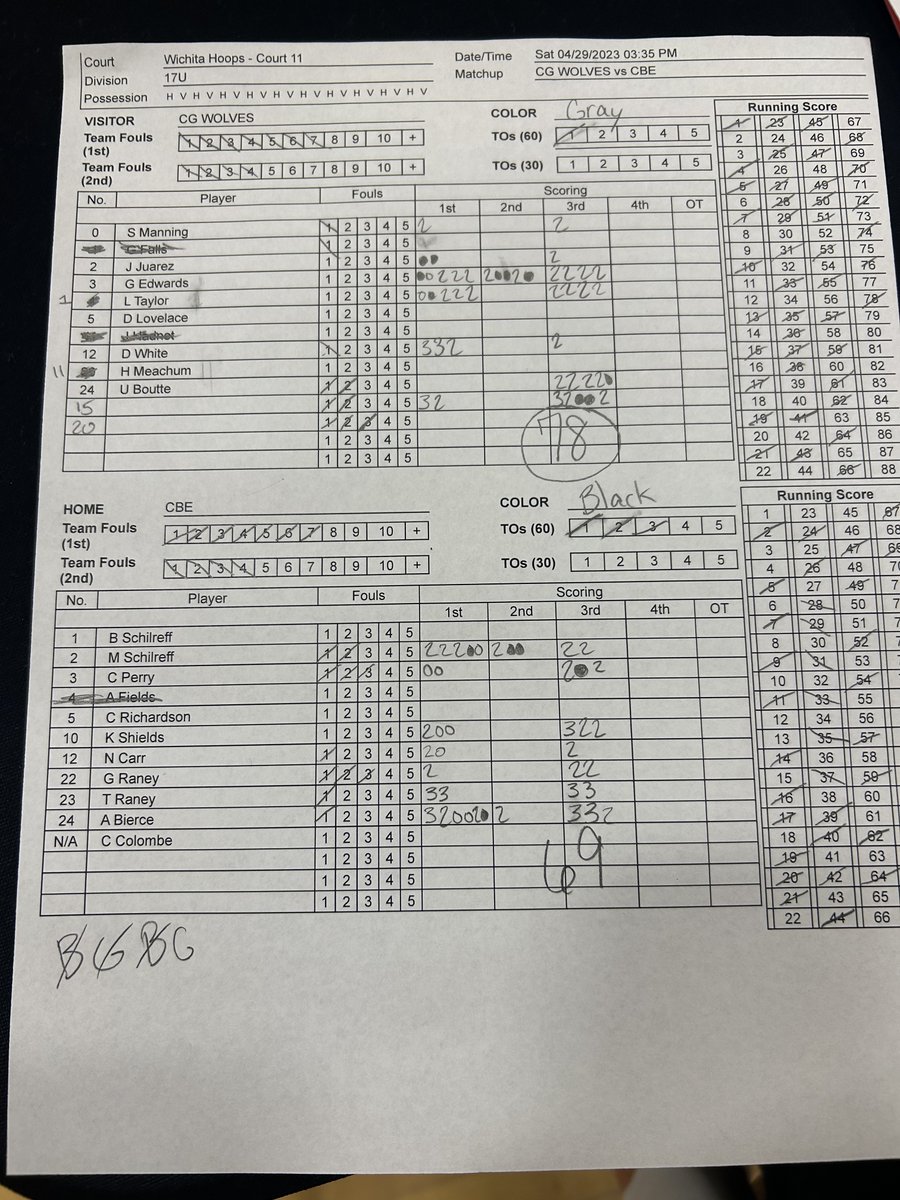 Court Wichita Hoops - Court 11 Date/Time Sat 04/29/2023 03:35 PM
Division 17U Matchup CG WOLVES vs CBE
Possession H V H V H V H V H V H V H V H V H V H V
VISITOR CG WOLVES COLOR Gray
Team Fouls (1st) 1 2 3 4 5 6 7 8 9 10 + TOs (60) 1 2 3 4 5
Team Fouls (2nd) 1 2 3 4 5 6 7 8 9 10 + TOs (30) 1 2 3 4 5
No. Player Fouls Scoring
1st 2nd 3rd 4th OT
0 S Manning 1 2 3 4 5 2 2
C Falls 1 2 3 4 5
2 J Juarez 1 2 3 4 5 2
3 G Edwards 1 2 3 4 5 222 2222
1 L Taylor 1 2 3 4 5 222 2222
5 D Lovelace 1 2 3 4 5
1 2 3 4 5
12 D White 1 2 3 4 5 332 2
11 H Meachum 1 2 3 4 5
24 U Boutte 1 2 3 4 5 2222
15 1 2 3 4 5 32
20 1 2 3 4 5
1 2 3 4 5
1 2 3 4 5
78
Running Score
1 23 45 67
2 24 46 68
3 25 47 69
4 26 48 70
5 27 49 71
6 28 50 72
7 29 51 73
8 30 52 74
9 31 53 75
10 32 54 76
11 33 55 77
12 34 56 78
13 35 57 79
14 36 58 80
15 37 59 81
16 38 60 82
17 39 61 83
18 40 62 84
19 41 63 85
20 42 64 86
21 43 65 87
22 44 66 88
HOME CBE COLOR Black
Team Fouls (1st) 1 2 3 4 5 6 7 8 9 10 + TOs (60) 1 2 3 4 5
Team Fouls (2nd) 1 2 3 4 5 6 7 8 9 10 + TOs (30) 1 2 3 4 5
No. Player Fouls Scoring
1st 2nd 3rd 4th OT
1 B Schilreff 1 2 3 4 5
2 M Schilreff 1 2 3 4 5 22200 2 22
3 C Perry 1 2 3 4 5 00 2 2
4 A Fields 1 2 3 4 5
5 C Richardson 1 2 3 4 5
10 K Shields 1 2 3 4 5 200 322
12 N Carr 1 2 3 4 5 20 2
22 G Raney 1 2 3 4 5 2 22
23 T Raney 1 2 3 4 5 33 33
24 A Bierce 1 2 3 4 5 320020 2 332
N/A C Colombe 1 2 3 4 5
1 2 3 4 5
1 2 3 4 5
1 2 3 4 5
69
Running Score
1 23 45 67
2 24 46 68
3 25 47 69
4 26 48 70
5 27 49 7
6 28 50 7
7 29 51 7
8 30 52
9 31 53
10 32 54
11 33 55
12 34 56
13 35 57
14 36 58
15 37 59
16 38 60
17 39 61
18 40 62
19 41 63
20 42 64
21 43 65
22 44 66
B G B G